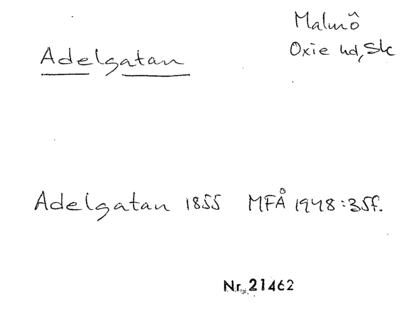 Malmö
Oxie hd, Sk
Adelgatan
Adelgatan 1855 MFÅ 1948:35f.
Nr. 21462